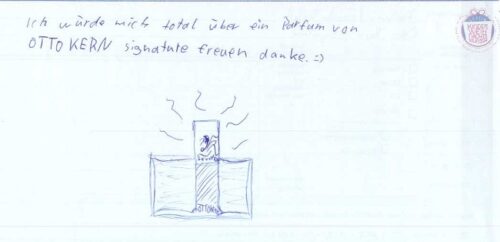 Ich würde mich total über ein Parfum von
OTTO KERN signature freuen danke. =)
OTTO KERN